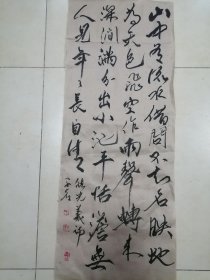 山中有流水借問不知名映地
為天色飛空作雨聲轉来
深澗滿分出小池平恬澹無
人見年々長自清 儲光羲詩